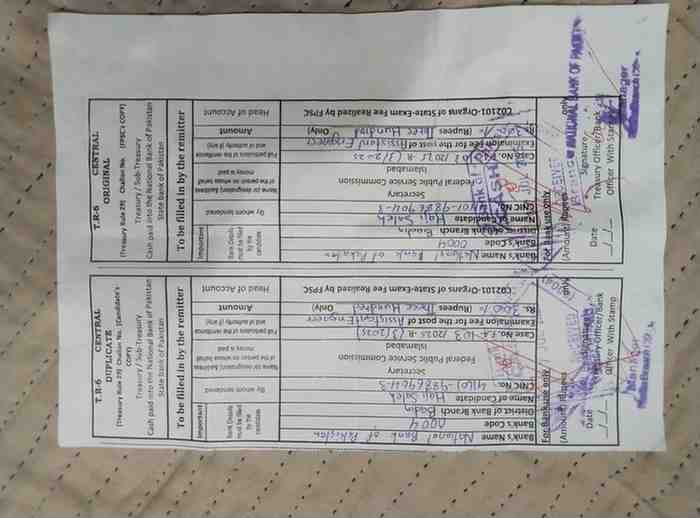 T.R-6 CENTRAL
ORIGINAL
(Treasury Rule 29) Challan No. (FPSC's COPY)
Treasury / Sub-Treasury
Cash paid into the National Bank of Pakistan
State Bank of Pakistan
To be filled in by the remitter
Important
Bank Details must be filled by the candidate
Bank's Name National Bank of Pakistan
Bank's Code 0004
District of Bank Branch Badin
By whom tendered
Name of Candidate Haji Saleh
CNIC No.
Name (or designation) and address of the person on whose behalf money is paid
Secretary
Federal Public Service Commission
Islamabad
Full particulars of the remittance and of authority (if any)
Case No.
Examination Fee for the post of Assistant Engineer
Amount
Rs. 300/= (Rupees Three Hundred Only)
Head of Account
C02101-Organs of State-Exam Fee Realized by FPSC
For Bank use only
(Amount) Rupees only
Date
Signature
Treasury Officer/Bank
Officer With Stamp
NATIONAL BANK OF PAKISTAN
Manager
T.R-6 CENTRAL
DUPLICATE
(Treasury Rule 29) Challan No. (Candidate's COPY)
Treasury / Sub-Treasury
Cash paid into the National Bank of Pakistan
State Bank of Pakistan
To be filled in by the remitter
Important
Bank Details must be filled by the candidate
Bank's Name National Bank of Pakistan
Bank's Code 0004
District of Bank Branch Badin
By whom tendered
Name of Candidate Haji Saleh
CNIC No.
Name (or designation) and address of the person on whose behalf money is paid
Secretary
Federal Public Service Commission
Islamabad
Full particulars of the remittance and of authority (if any)
Case No.
Examination Fee for the post of Assistant Engineer
Amount
Rs. 300/= (Rupees Three Hundred Only)
Head of Account
C02101-Organs of State-Exam Fee Realized by FPSC
For Bank use only
(Amount) Rupees only
Date
Treasury Officer/Bank
Officer With Stamp
Manager